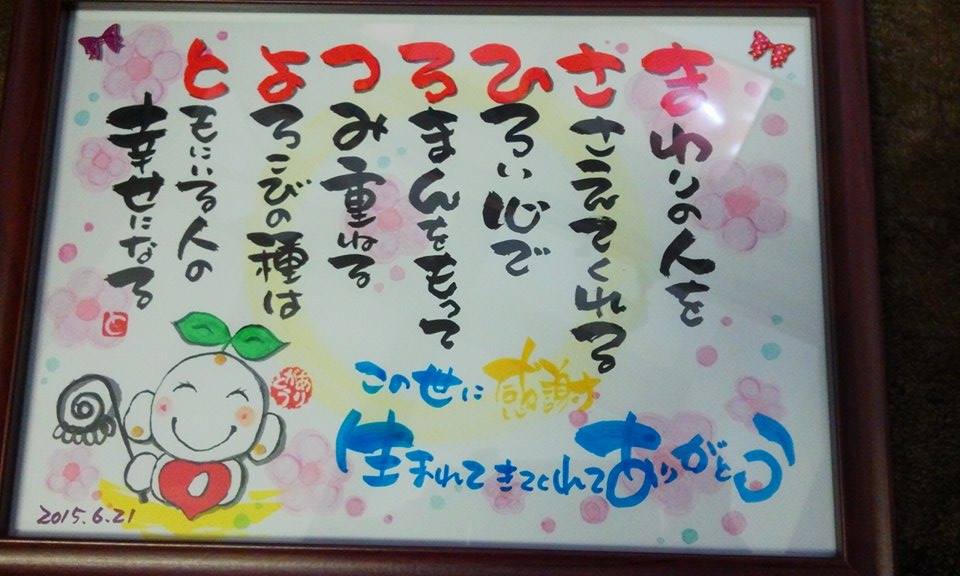 まわりの人を
ささえてくれる
ひろい心で
ろまんをもって
つみ重ねる
よろこびの種は
ともにいる人の
幸せになる
この世に感謝
生まれてきてくれてありがとう
ありがとう
2015.6.21